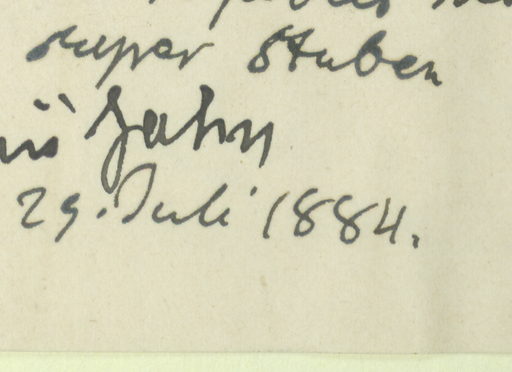 super Stuben
Jahn
29. Juli 1884.